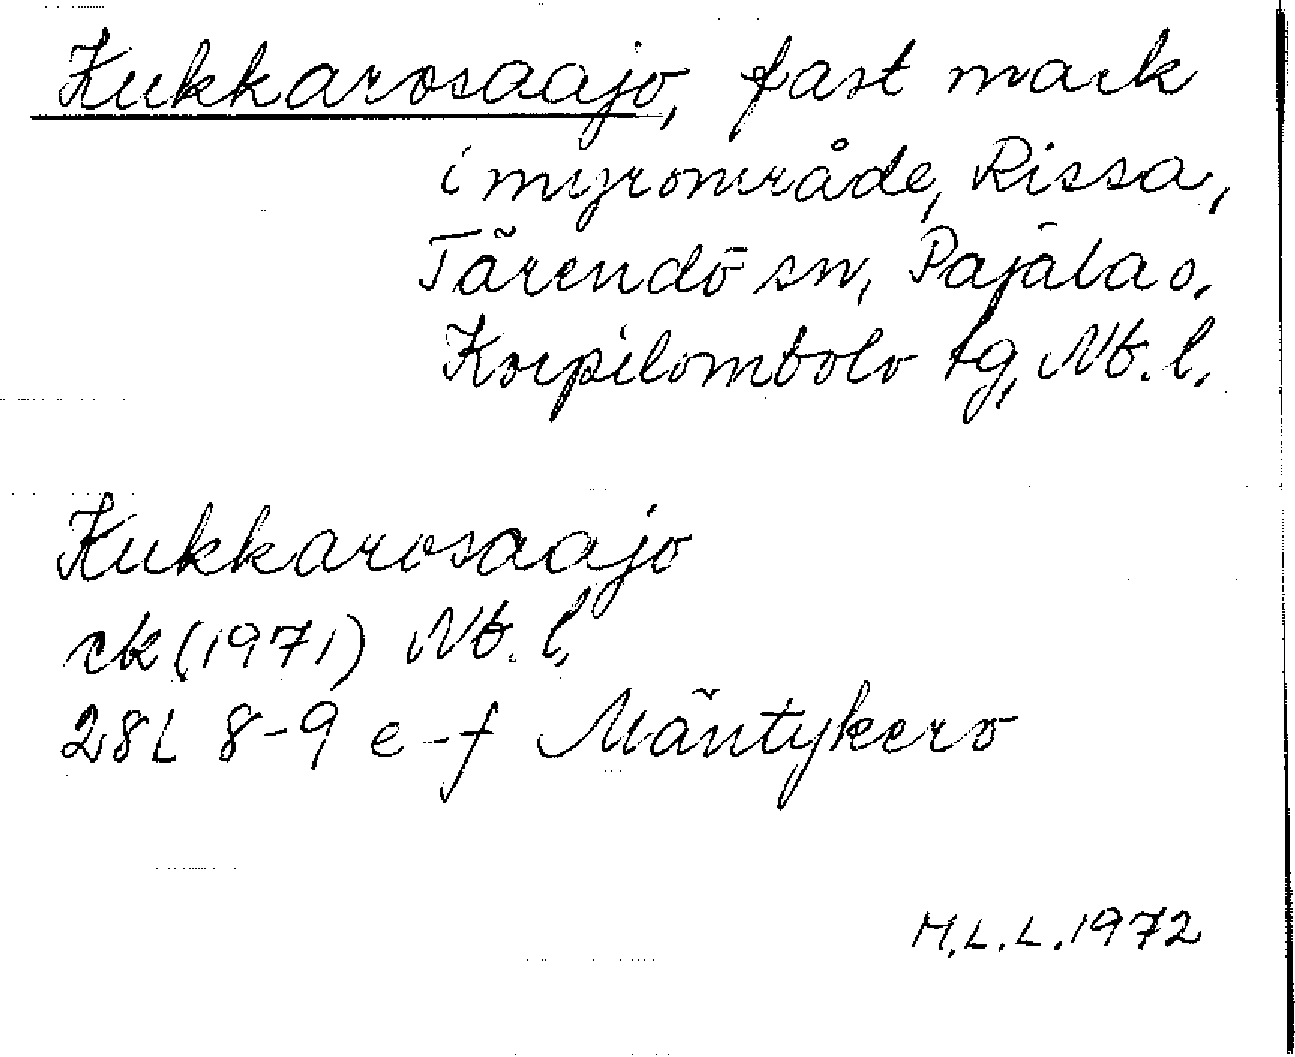 Kukkarosaajo, fast mark
i myrområde, Rissa,
Tärendö sn, Pajala o.
Korpilombolo tg, Nb. l.
Kukkarosaajo
ek (1971) Nb. l.
28L 8-9 e-f Mäntykero
M.L.L. 1972